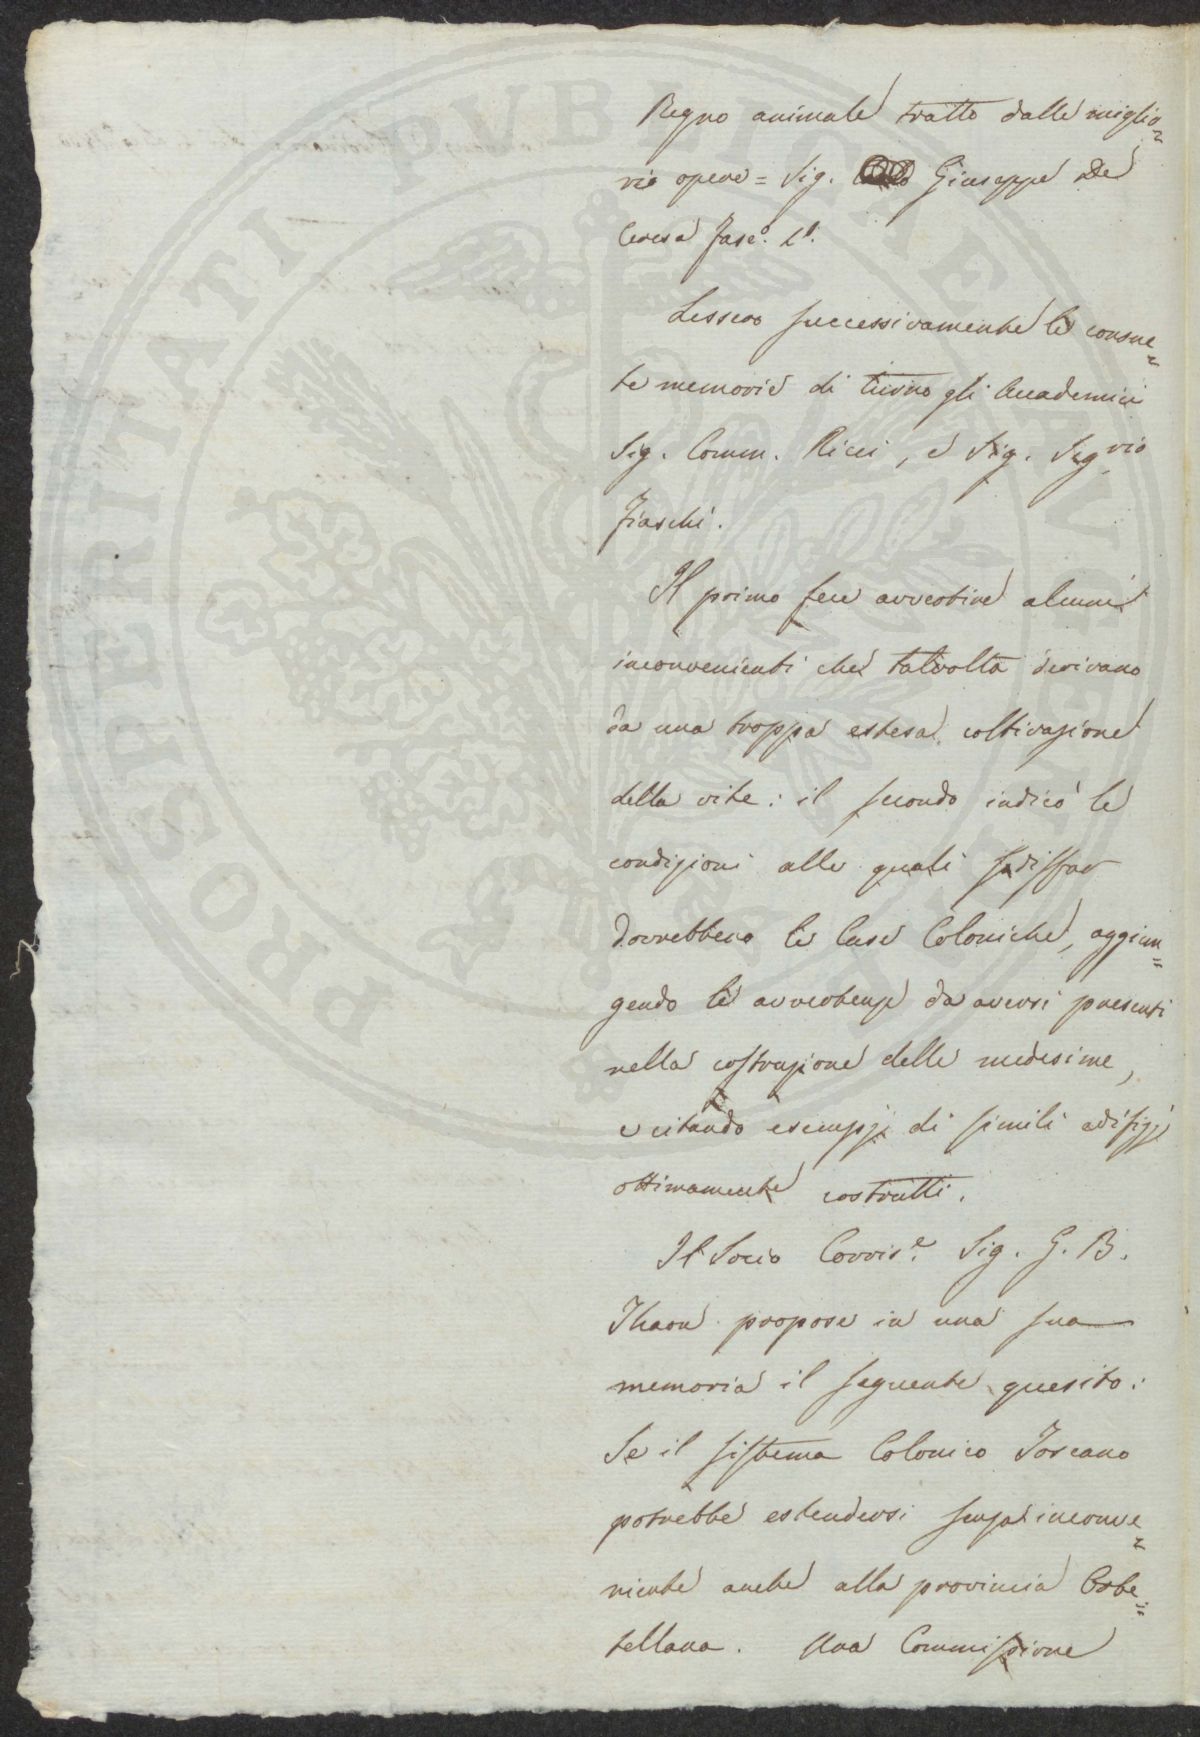 Regno animale tratto dalle miglio=
rie opere = Sig. Giuseppe De
Ceresa Fasc.o 1.o
Lessero successivamente le consue=
te memorie di turno gli Accademici
Sig. Comm. Ricci, e Sig. Seg.rio
Fiaschi.
Il primo fece avvertire alcuni
inconvenienti che talvolta derivano
da una troppa estesa coltivazione
della vite: il secondo indicò le
condizioni alle quali sodisfar
dovrebbero le Case Coloniche, aggiun=
gendo le avvertenze da aversi presenti
nella costruzione delle medesime,
e citando esempj di simili edifizj
ottimamente costrutti.
Il Socio Corris.e Sig. G. B.
Thaon propose in una sua
memoria il seguente quesito:
Se il sistema Colonico Toscano
potrebbe estendersi senza inconve=
niente anche alla provincia Orbe=
tellana. Una Commissione
PROSPERITATI PUBLICAE AUGENDAE